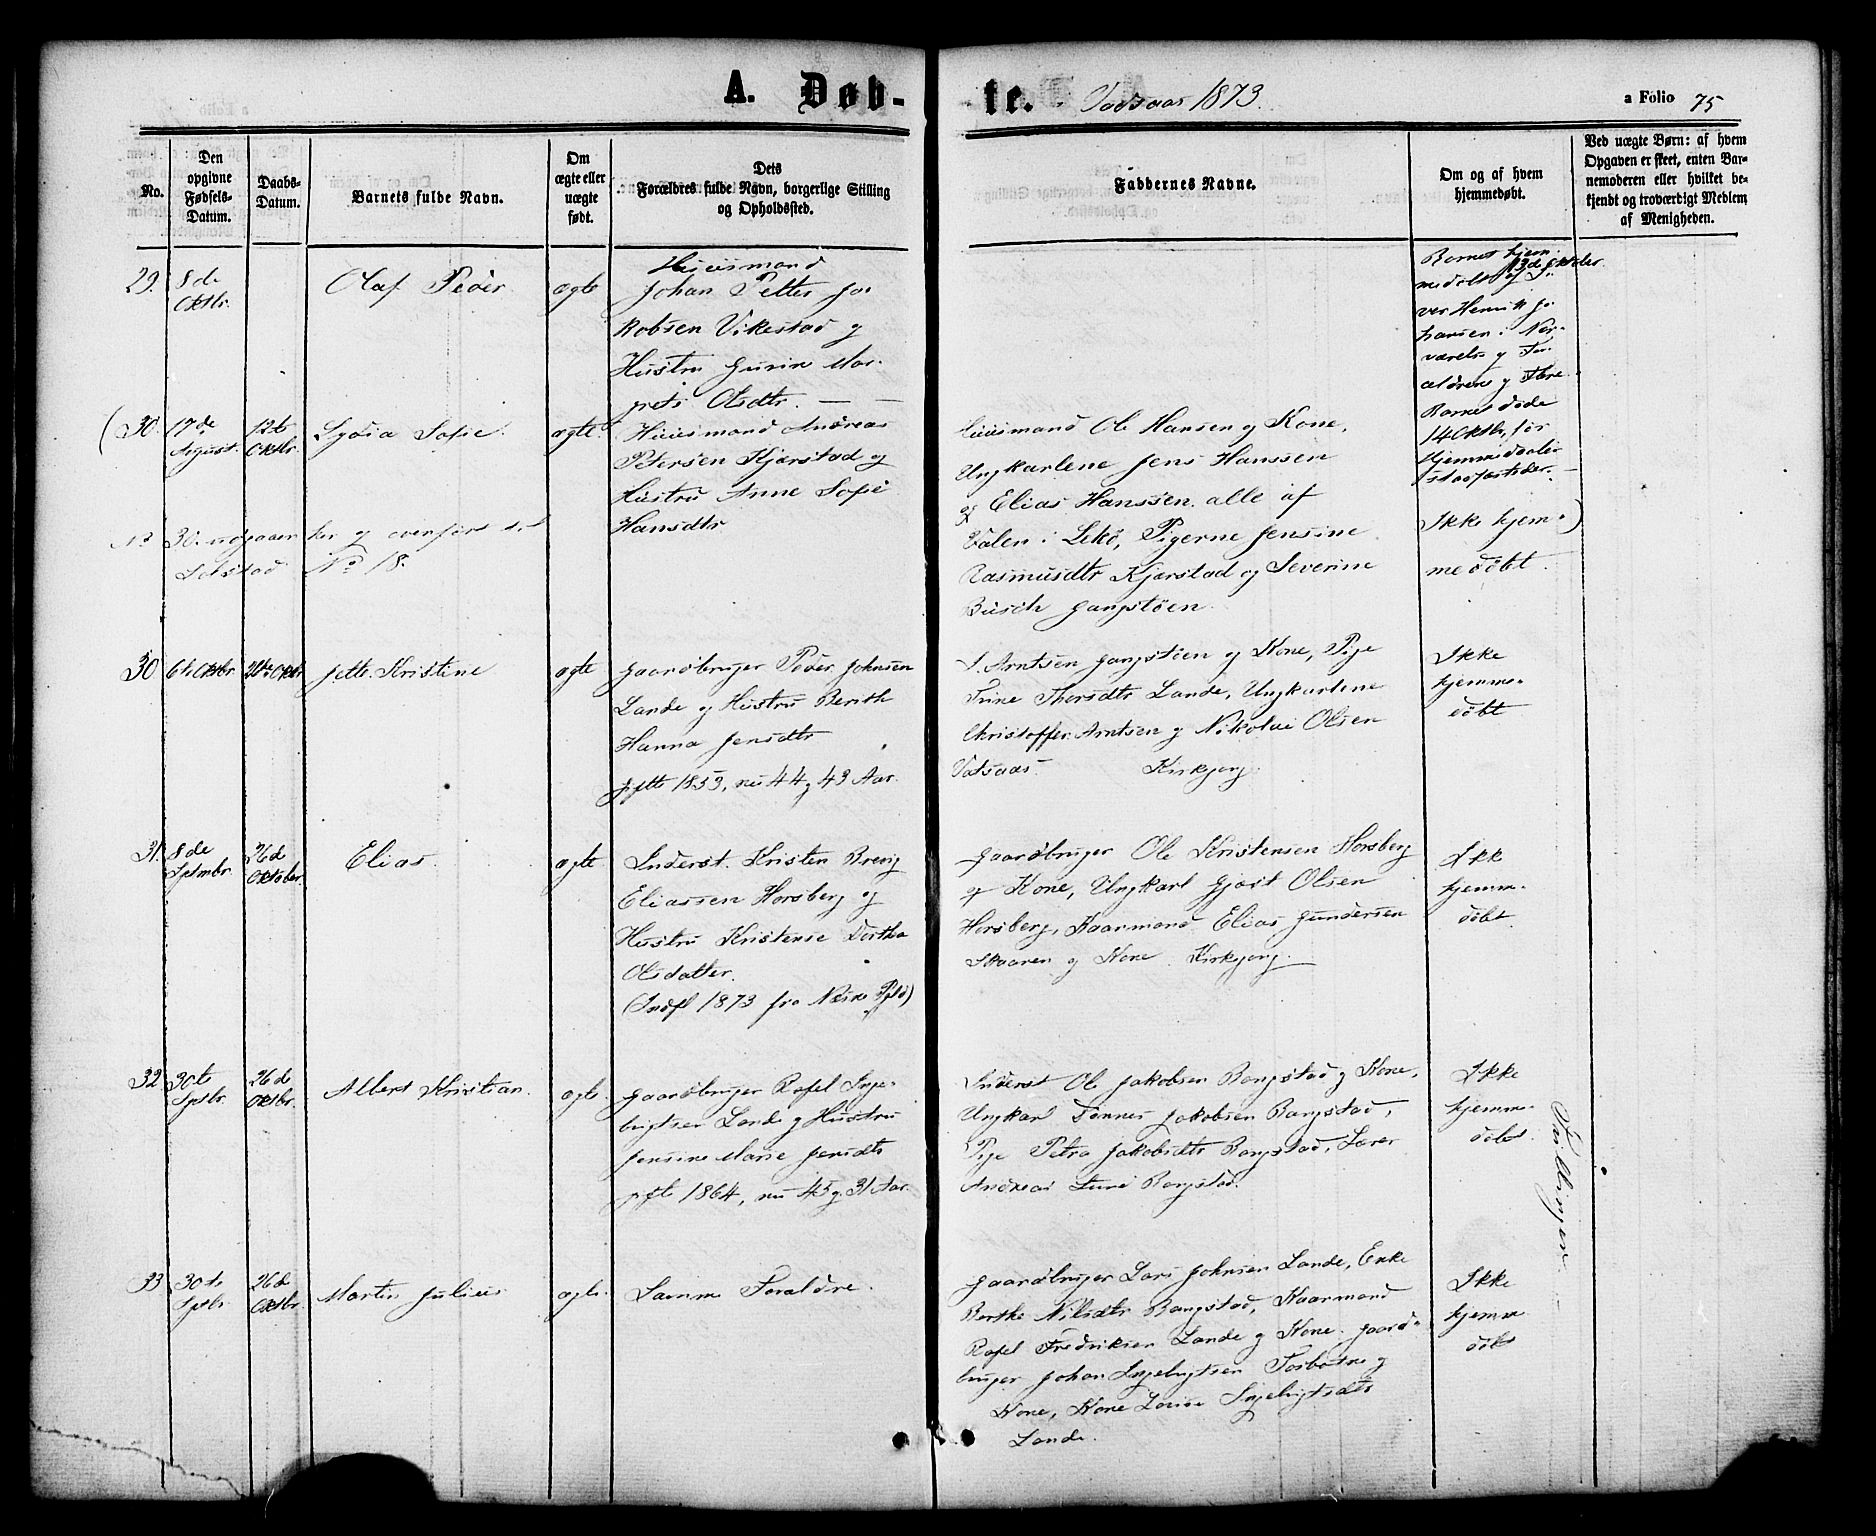 A. Døb-
te. Vadsaas 1873.
a Folio 75
No.
Den
opgivne
Fødsels-
Datum.
Daabs-
Datum.
Barnets fulde Navn.
Om
ægte eller
uægte
født.
Dets
Forældres fulde Navn, borgerlige Stilling
og Opholdssted.
Faddernes Navne.
Om og af hvem
hjemmedøbt.
Ved uægte Børn: af hvem
Opgaven er skeet, enten Bar-
nemoderen eller hvilket be-
kjendt og troværdigt Medlem
af Menigheden.
29.
8de
Oktbr.
Olaf Peder
ægte
Huusmand
Johan Petter Ja-
kobsen Vikestad og
Hustru Gurine Mar-
grete Olsdtr.
Barnet hjem-
13de Oktober
medøbt af
ver Henrik Jo-
hansen i Nær-
værelse af For-
ældrene og Flere.
Barnet døde
14 Oktbr, før
Hjemmedaaben
stadfæstedes.
(30
17de
August.
12te
Oktbr.
Lydia Sofie.
ægte
Huusmand Andreas
Petersen Kjærstad og
Hustru Anne Sofie
Hansdtr
Huusmand Ole Hansen og Kone,
Ungkarlene Jens Hanssen
og Elias Hanssen alle af
Valen i Lekø, Pigerne Jensine
Rasmusdtr Kjærstad og Severine
Busch Gangstøen.
Ikke hjem-)
medøbt.
No 30. udgaaer her og overføres til
Solstad No 18.
30
6te Oktbr.
Oktbr
Jette Kristine
ægte
Gaardbruger Peder Johnsen
Lande og Hustru Berith
Hanna Jensdtr
gifte 1853, nu 44 og 43 Aar.
Arntsen Gangstøen og Kone, Pige
Trine Thorsdtr Lande, Ungkarlene
Christoffer Arntsen og Nikolai Olsen
Vatsaas. Kirkgang.
Ikke
hjemme-
døbt
31.
8de
Sptmbr.
26d
Oktober.
Elias.
ægte
Inderst Kristen Brevig
Eliassen Horsberg og
Hustru Kristense Dorthea
Olsdatter.
(Indfl 1873 fra Næsne Pgld)
Gaardbruger Ole Kristensen Horsberg
og Kone, Ungkarl Gjert Olsen
Horsberg, Kaarmand Elias Gundersen
Skaaren og Kone. Kirkgang.
Ikke
hjemm-
døbt.
32
30te
Sptbr.
26d
Oktbr.
Albert Kristian.
ægte.
Gaardbruger Rafel Inge-
brigtsen Lande og Hustru
Jensine Marie Jensdtr
gifte 1864, nu 45 og 31 Aar.
Inderst Ole Jakobsen Bangstad og Kone,
Ungkar Tønnes Jakobsen Bangstad,
Pige Petra Jakobsdtr Bangstad, Lærer
Andreas Lund Bangstad.
Ikke
hjemm-
døbt.
Tvillinger
33
30te
Sptbr.
26d
Oktbr.
Martin Julius
ægte.
Samme Forældre.
Gaardbruger Lars Johnsen Lande, Enke
Berthe Nilsdtr Bangstad, Kaarmand
Rafel Fredriksen Lande og Kone. Gaard-
bruger Johan Ingebrigtsen Tosbotne og
Kone, Kone Lovise Ingebrigtsdtr
Lande.
Ikke
hjemm
døbt